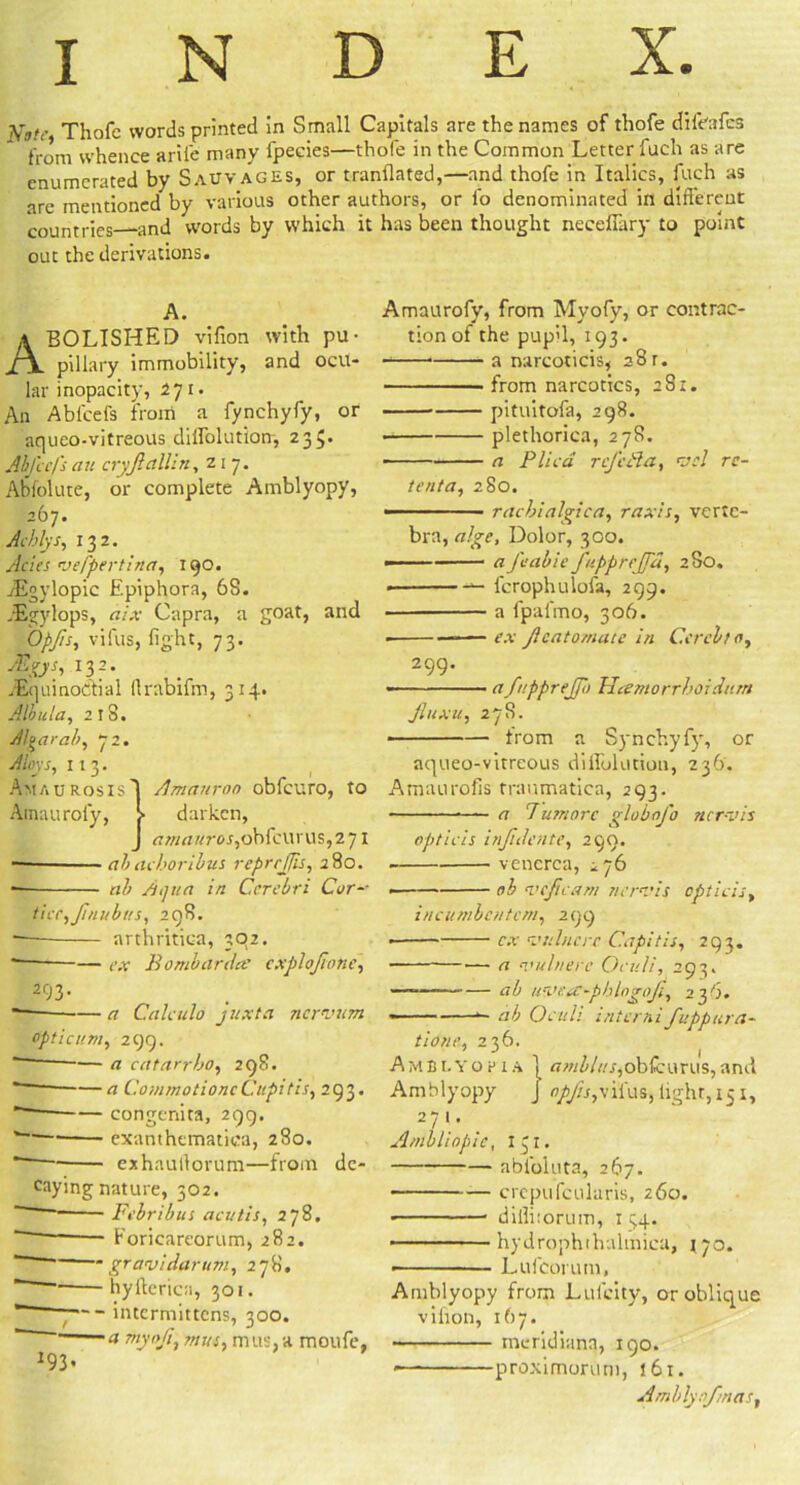 INDEX.
Note, Thoſe words printed in Small Capitals are the names of thoſe diſeaſes
from whence ariſe many ſpecies—thoſe in the Common Letter ſuch as are
enumerated by SAUVAGES, or tranſlated,—and thoſe in Italics, ſuch as
are mentioned by various other authors, or ſo denominated in different
countries—and words by which it has been thought neceſſary to point
out the derivations.
A.
ABOLISHED viſion with pu-
pillary immobility, and ocu-
lar inopacity, 271.
An Abſceſs from a ſynchyſy, or
aqueo-vitreous diſſolution, 235.
Abſceſs au cryſtallin, 217.
Abſolute, or complete Amblyopy,
267.
Achlys, 132.
Acies veſpertina, 190.
Ægylopic Epiphora, 68.
Ægylops, aix Capra, a goat, and
Opſis, viſus, ſight, 73.
Ægys, 132.
Æquinoctial ſtrabiſm, 314.
Albula, 218.
Algarab, 72.
Aloys, 113.
AMAUROSIS } Amauroo obſcuro, to
Amauroſy, } darken,
amauros, obſcurus, 271
—— ab achoribus repreſſis, 280.
—— ab Aqua in Cerebri Cor-
tice, ſinubus, 298.
—— arthritica, 302.
—— ex Bombardæ exploſione,
293.
—— a Calculo juxta nervum
opticum, 299.
—— a catarrho, 298.
—— a Commotione Capitis, 293.
—— congenita, 299.
—— exanthematica, 280.
—— exhauſtorum—from de-
caying nature, 302.
—— Febribus acutis, 278.
—— Foricareorum, 282.
—— gravidarum, 278.
—— hyſterica, 301.
—— intermittens, 300.
—— a myoſi, mus, mus, a mouſe,
193.
Amauroſy, from Myoſy, or contrac-
tion of the pupil, 193.
—— a narcoticis, 281.
—— from narcotics, 281.
—— pituitoſa, 298.
—— plethorica, 278.
—— a Plicâ reſecta, vel re-
tenta, 280.
—— rachialgica, raxis, verte-
bra, alge, Dolor, 300.
—— a ſcabie ſuppreſſâ, 280.
—— ſcrophuloſa, 299.
—— a ſpaſmo, 306.
—— ex ſteatomate in Cerebro,
299.
—— a ſuppreſſo Hæmorrhoidum
fluxu, 278.
—— from a Synchyſy, or
aqueo-vitreous diſſolution, 236.
Amauroſis traumatica, 293.
—— a Tumore globoſo nervis
opticis inſidente, 299.
—— venerea, 276
—— ob veſicam nervis opticis,
incumbentem, 299
—— ex vulnere Capitis, 293.
—— a vulnere Oculi, 293.
—— ab uveæ-phlogoſi, 236.
—— ab Oculi interni ſuppura-
tione, 236.
AMBLYOPIA } amblus, obſcurus, and
Amblyopy } opſis, viſus, ſight, 151,
271.
Ambliopie, 151.
—— abſoluta, 267.
—— crepuſcularis, 260.
—— diſſitorum, 154.
—— hydrophthalmica, 170.
—— Luſcorum,
Amblyopy from Luſcity, or oblique
viſion, 167.
—— meridiana, 190.
—— proximorum, 161.
Amblyoſmas,